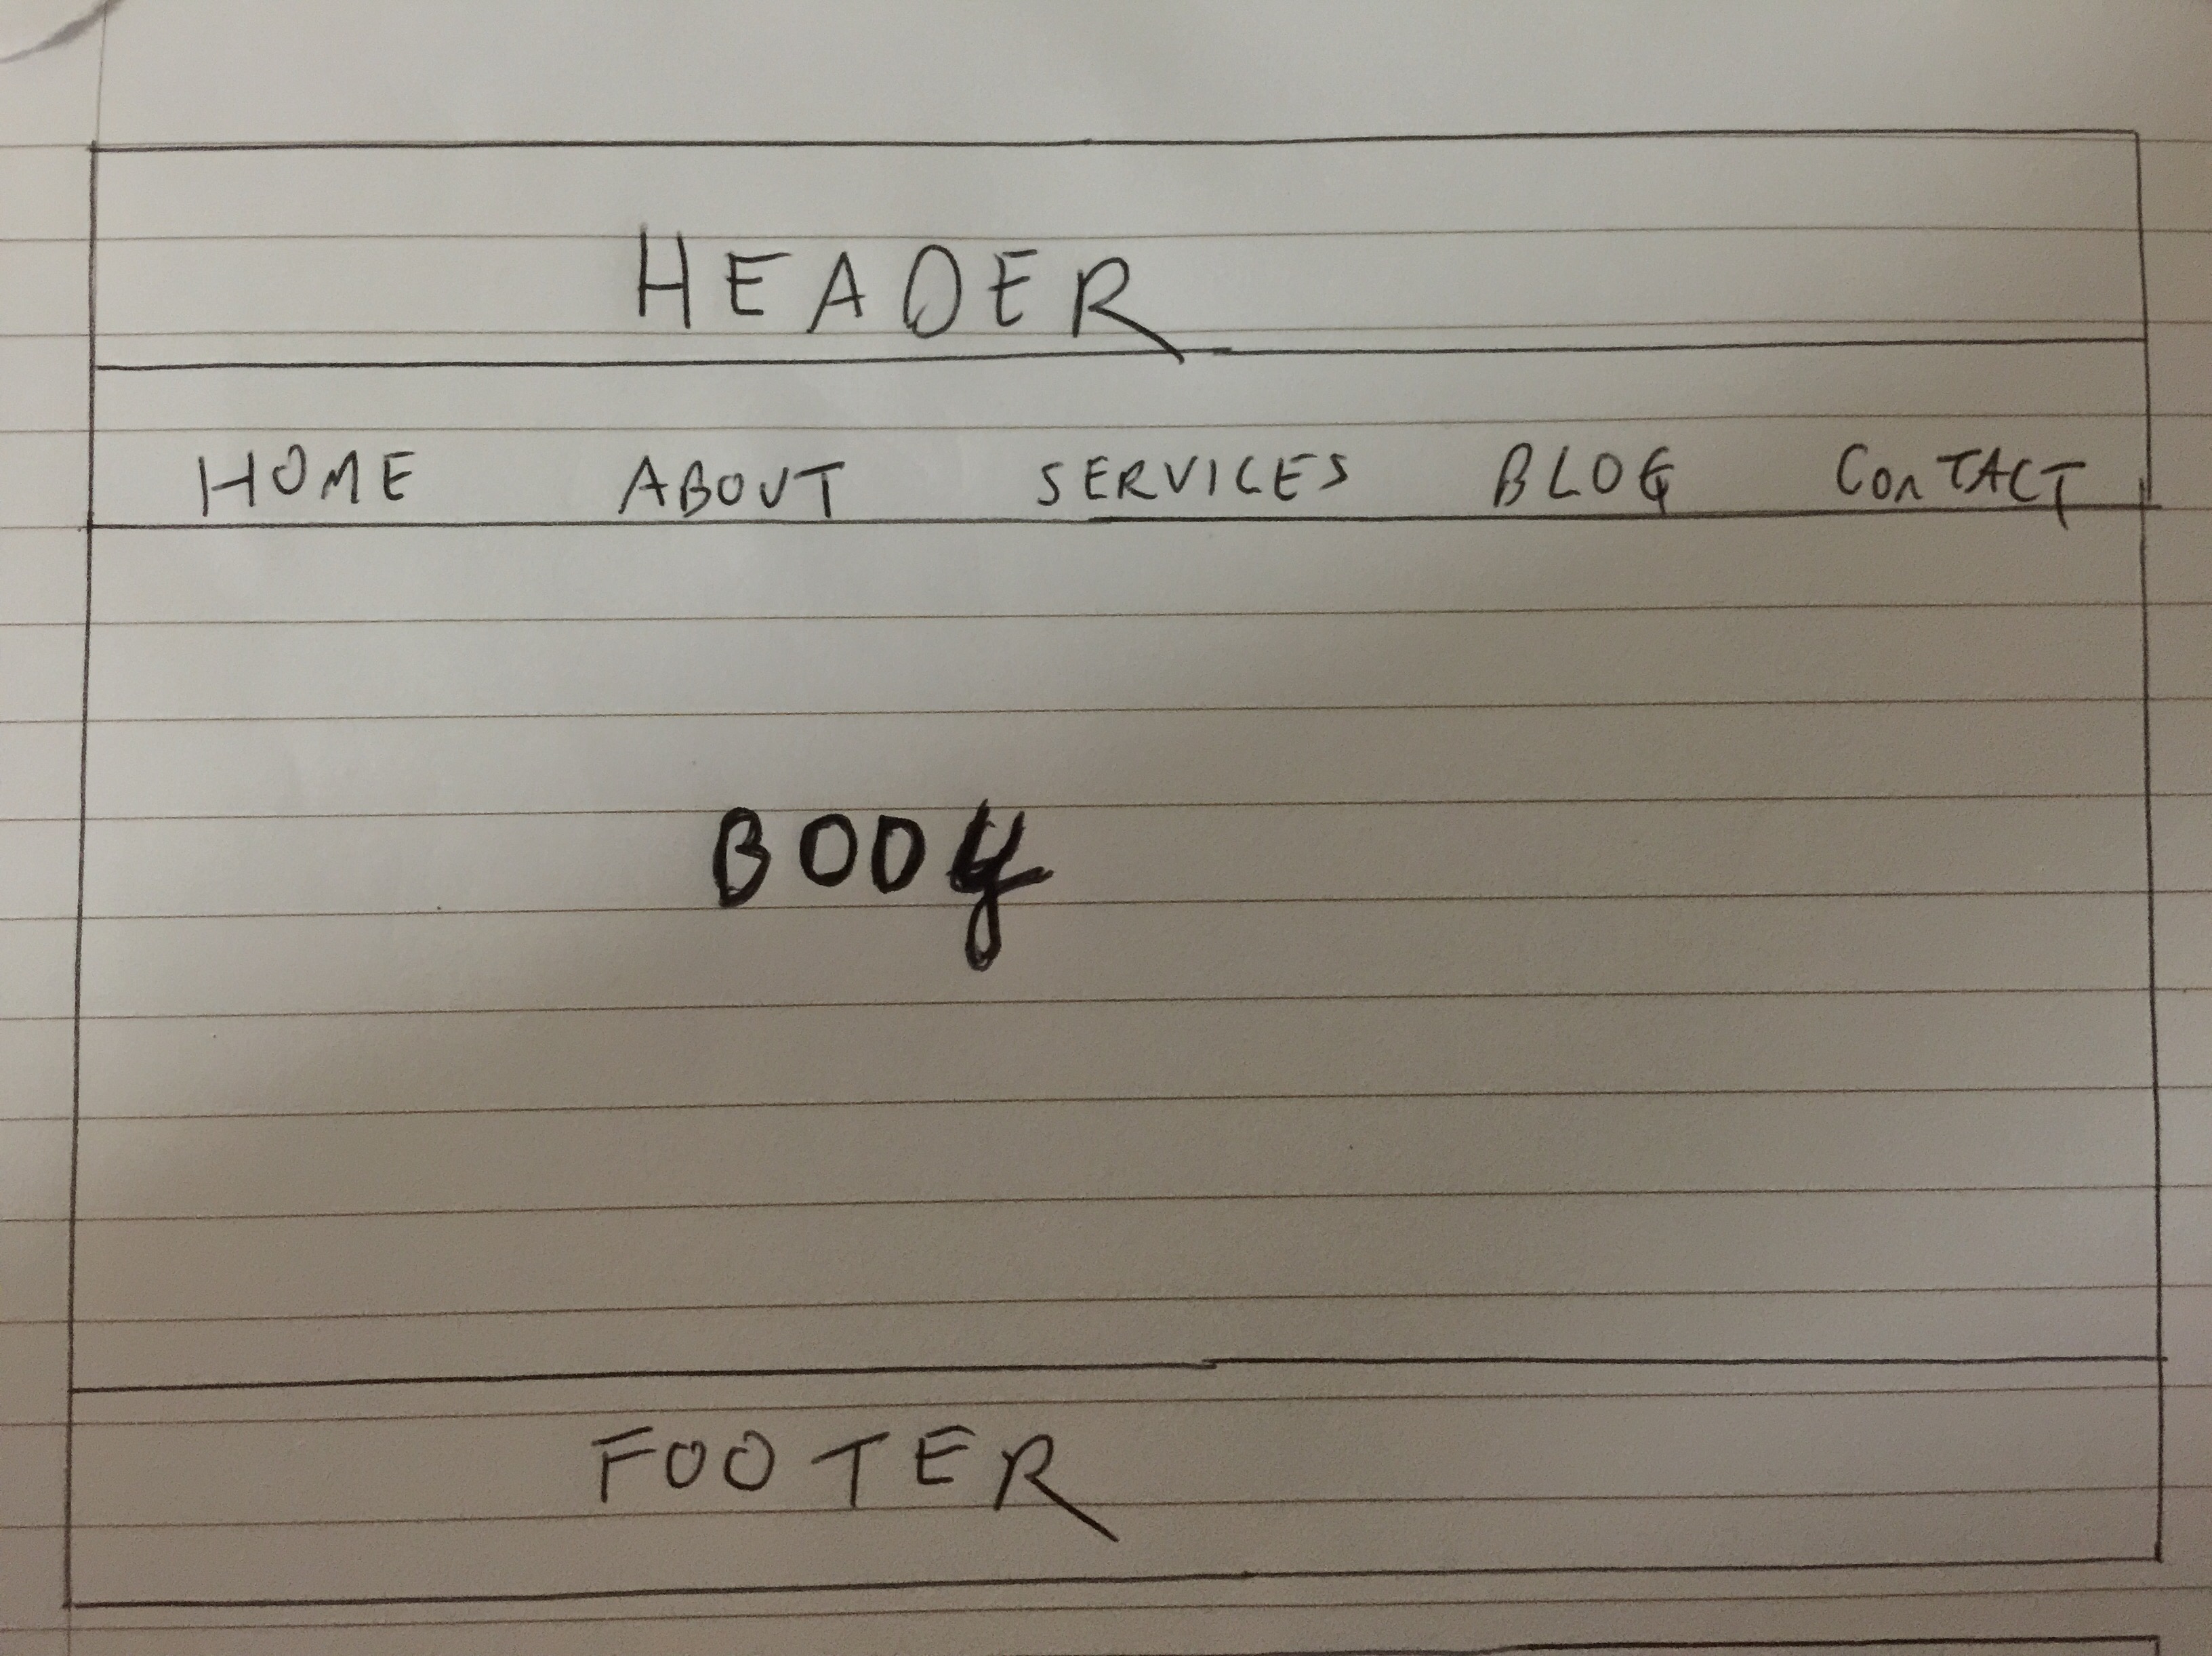 HEADER
HOME ABOUT SERVICES BLOG CONTACT
BODY
FOOTER